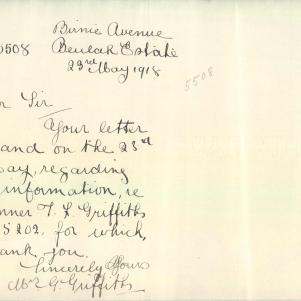 Birnie Avenue
0508 Beulah Estate
23rd May 1918
5508
r Sir
Your letter
and on the 23rd
ay, regarding
information, re
nner F. L. Griffiths
5202, for which
hank you.
Sincerely Yours
Mrs G Griffiths